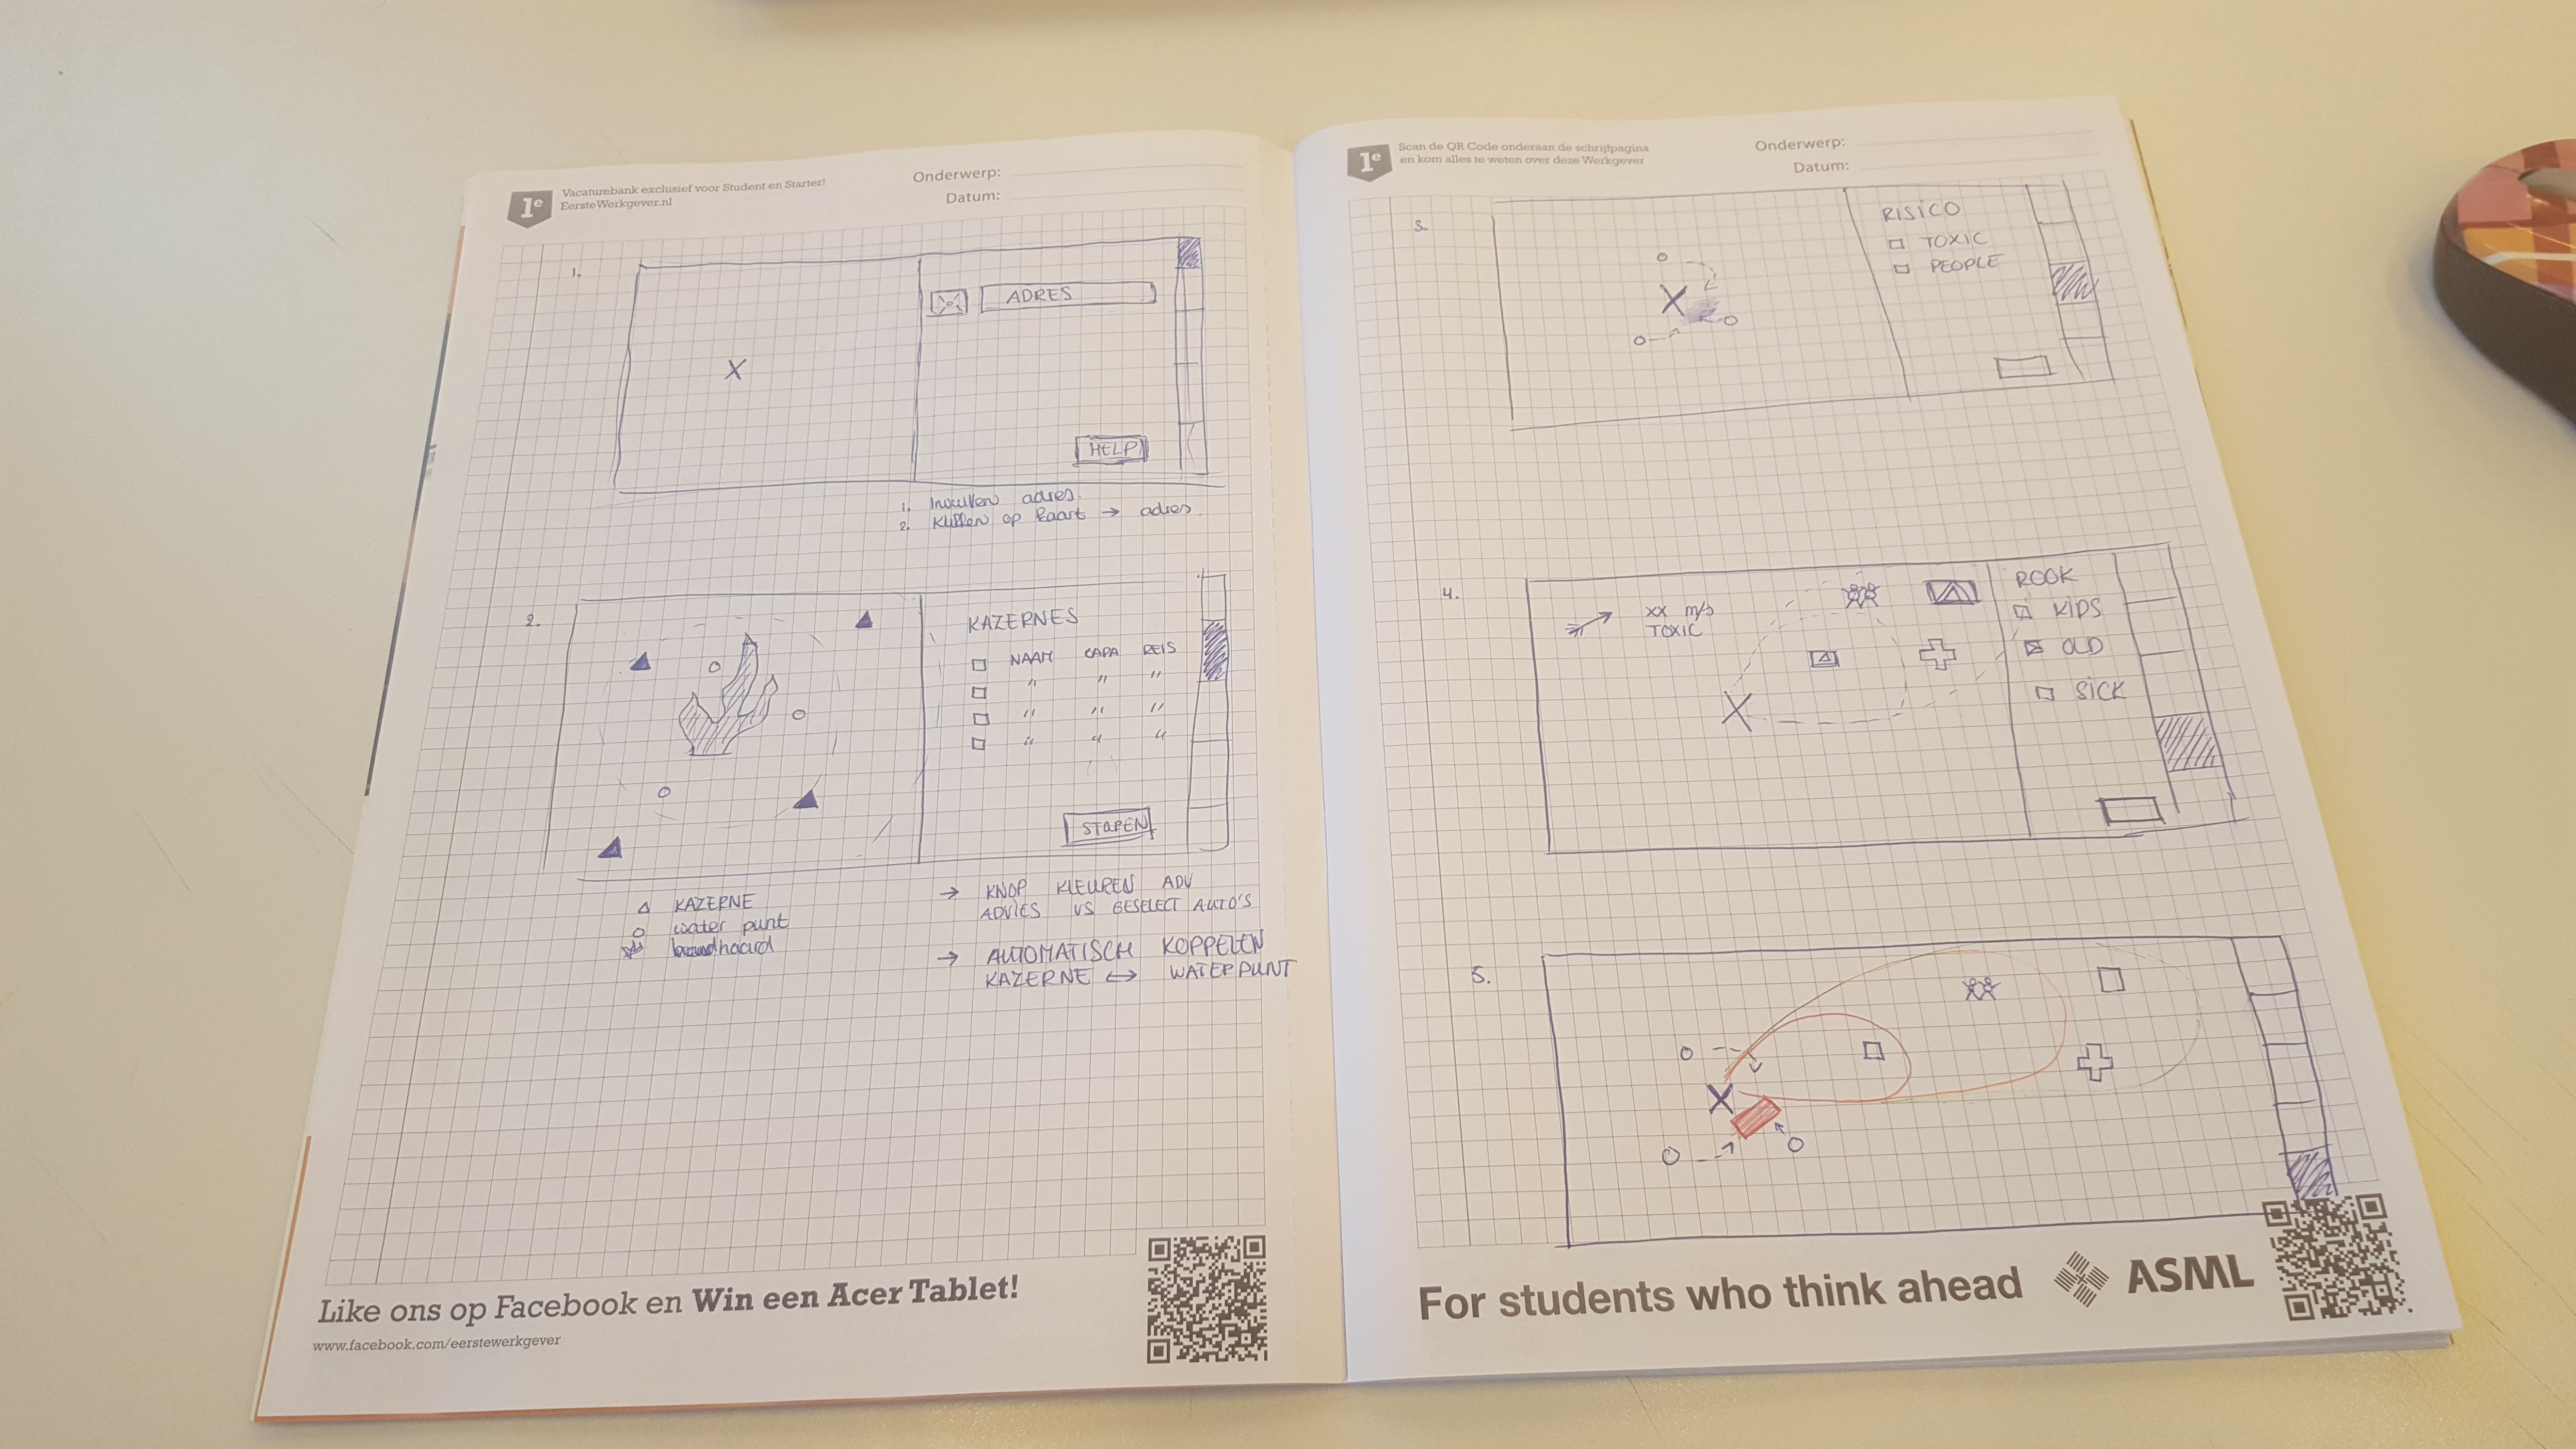 1e
Vacaturebank exclusief voor Student en Starter!
EersteWerkgever.nl
Onderwerp:
Datum:
1.
X
ADRES
HELP
1. Invullen adres.
2. Klikken op kaart → adres
2.
KAZERNES
NAAM CAPA REIS
" " "
" " "
" " "
STUREN
△ KAZERNE
○ water punt
brandhaard
→ KNOP KLEUREN ADV
ADVIES VS GESELECT AUTO'S
→ AUTOMATISCH KOPPELEN
KAZERNE ↔ WATERPUNT
Like ons op Facebook en Win een Acer Tablet!
www.facebook.com/eerstewerkgever
1e
Scan de QR Code onderaan de schrijfpagina
en kom alles te weten over deze Werkgever
Onderwerp:
Datum:
3.
X
RISICO
TOXIC
PEOPLE
4.
xx m/s
TOXIC
X
ROOK
KIDS
OLD
SICK
5.
X
For students who think ahead
ASML